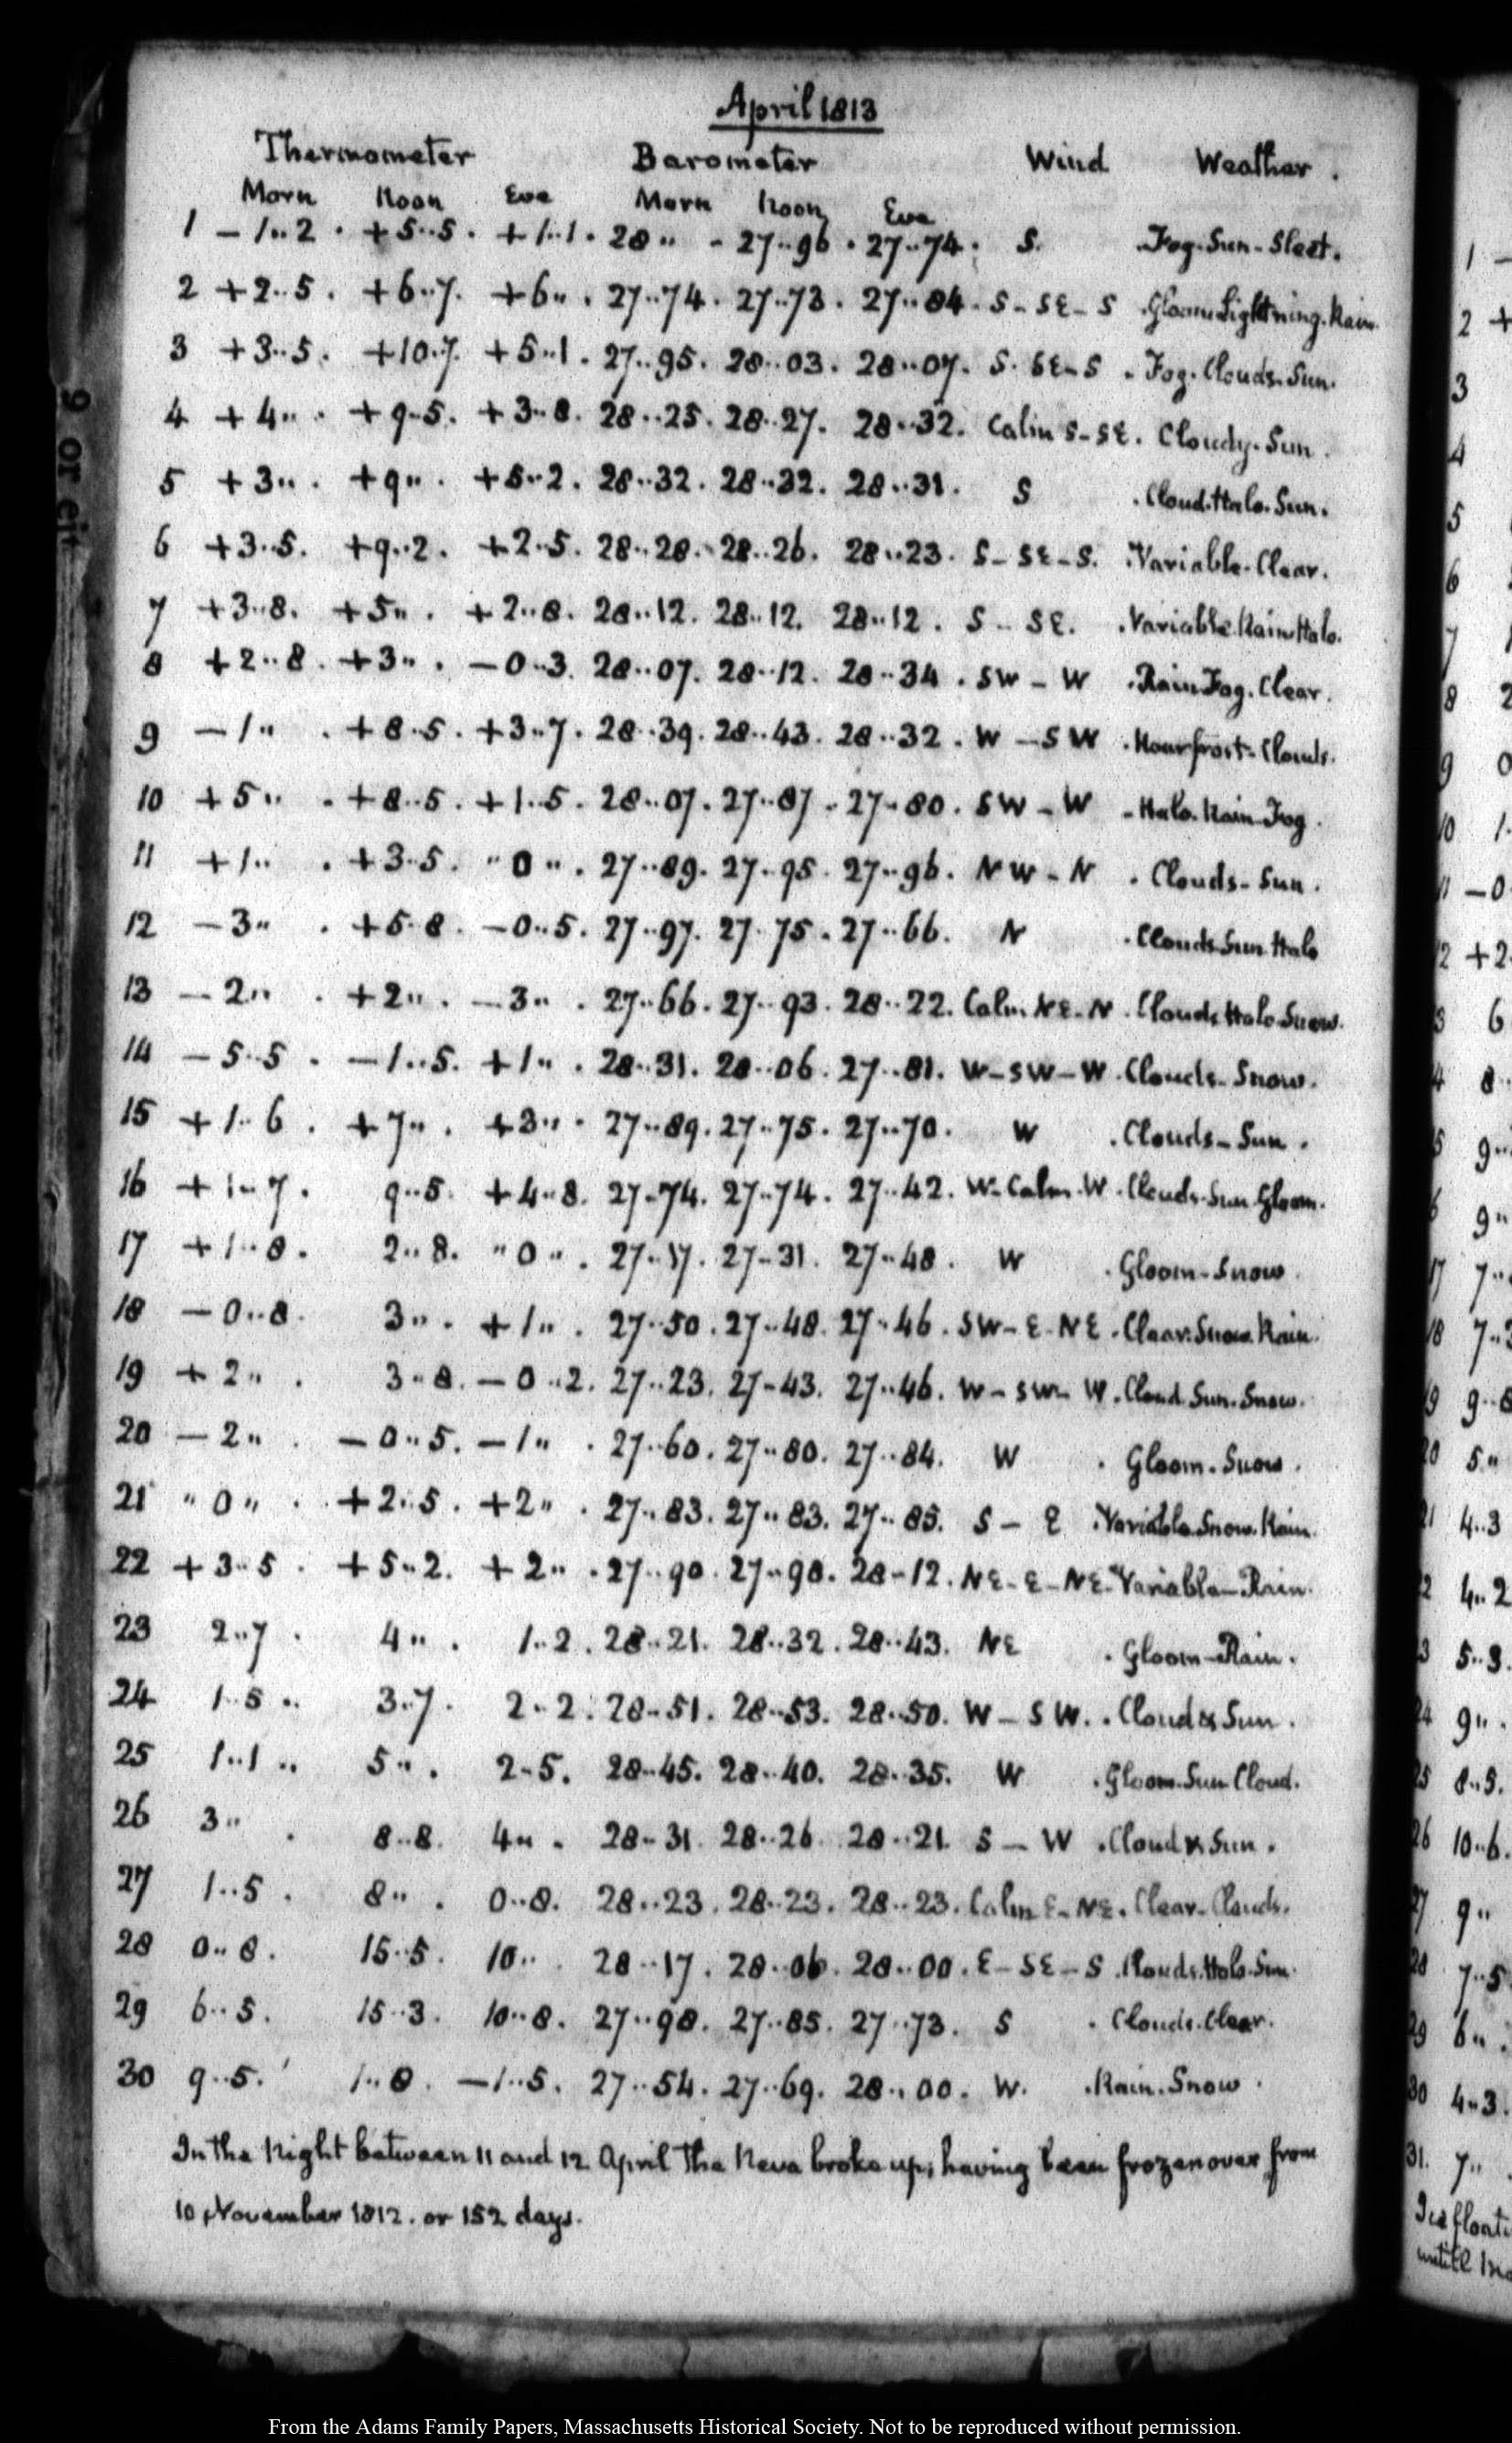 April 1813
Thermometer Barometer Wind Weather.
Morn Noon Eve Morn Noon Eve
1 –1..2. +5..5. +1..1. 28" - 27..96. 27..74. S. .Fog. Sun - Sleet.
2 +2..5. +6..7. +6". 27..74. 27..73. 27..84. S - SE - S .Gloom Lightning. Rain.
3 +3..5. +10.7. +5..1. 27..95. 28..03. 28..07. S. SE - S . Fog. Clouds. Sun.
4 +4". +9-5. +3..8. 28..25. 28..27. 28..32. Calm S-SE. Cloudy. Sun.
5 +3". +9". +5..2. 28..32. 28..32. 28..31. S . Cloud. Halo. Sun.
6 +3..5. +9..2. +2..5. 28..28. 28..26. 28..23. S - SE - S. .Variable. Clear.
7 +3..8. +5". +2..8. 28..12. 28..12. 28..12. S - SE. .Variable. Rain Halo.
8 +2..8. +3". –0..3. 28..07. 28..12. 28..34. SW - W .Rain Fog. Clear.
9 –1". +8..5. +3..7. 28..39. 28..43. 28..32. W - SW .Hoarfrost. Clouds.
10 +5". +8..5. +1..5. 28..07. 27..87. 27..80. SW - W - Halo. Rain Fog.
11 +1". +3..5. "0". 27..89. 27..95. 27..96. NW - N . Clouds - Sun.
12 –3". +5.8. –0..5. 27..97. 27.75. 27..66. N .Clouds Sun Halo
13 –2". +2". –3". 27..66. 27..93. 28..22. Calm NE - N . Clouds Halo Snow.
14 –5..5. –1..5. +1". 28..31. 28..06. 27..81. W - SW - W .Clouds - Snow.
15 +1..6. +7". +3". 27..89. 27..75. 27..70. W .Clouds - Sun.
16 +1..7. 9..5. +4..8. 27..74. 27..74. 27..42. W - Calm. W .Clouds. Sun Gloom.
17 +1..8. 2..8. "0". 27..17. 27-31. 27..48. W .Gloom - Snow.
18 –0..8. 3". +1". 27..50. 27..48. 27..46. SW - E - NE .Clear. Snow. Rain.
19 +2". 3..8. –0..2. 27..23. 27-43. 27..46. W - SW - W. Cloud. Sun. Snow.
20 –2". –0..5. –1". 27..60. 27..80. 27..84. W . Gloom. Snow.
21 "0". +2..5. +2". 27..83. 27..83. 27..85. S - E .Variable. Snow. Rain.
22 +3..5. +5..2. +2". 27..90. 27..98. 28-12. NE - E - NE. Variable - Rain.
23 2..7. 4". 1..2. 28..21. 28..32. 28..43. NE . Gloom - Rain.
24 1..5.. 3.7. 2..2. 28..51. 28..53. 28..50. W - SW. . Cloud & Sun.
25 1..1.. 5". 2-5. 28..45. 28..40. 28..35. W .Gloom. Sun Cloud.
26 3". 8..8. 4". 28-31. 28..26. 28..21. S - W .Cloud & Sun.
27 1..5. 8". 0..8. 28..23. 28..23. 28..23. Calm E - NE. Clear - Clouds.
28 0..8. 15..5. 10". 28..17. 28..06. 28..00. E - SE - S .Clouds. Halo. Sun.
29 6..5. 15..3. 10..8. 27..98. 27..85. 27..73. S . Clouds. Clear.
30 9..5. 1..8. –1..5. 27..54. 27..69. 28..00. W. .Rain. Snow.
In the Night between 11 and 12 April the Neva broke up; having been frozen over from
10 November 1812. or 152 days.
From the Adams Family Papers, Massachusetts Historical Society. Not to be reproduced without permission.